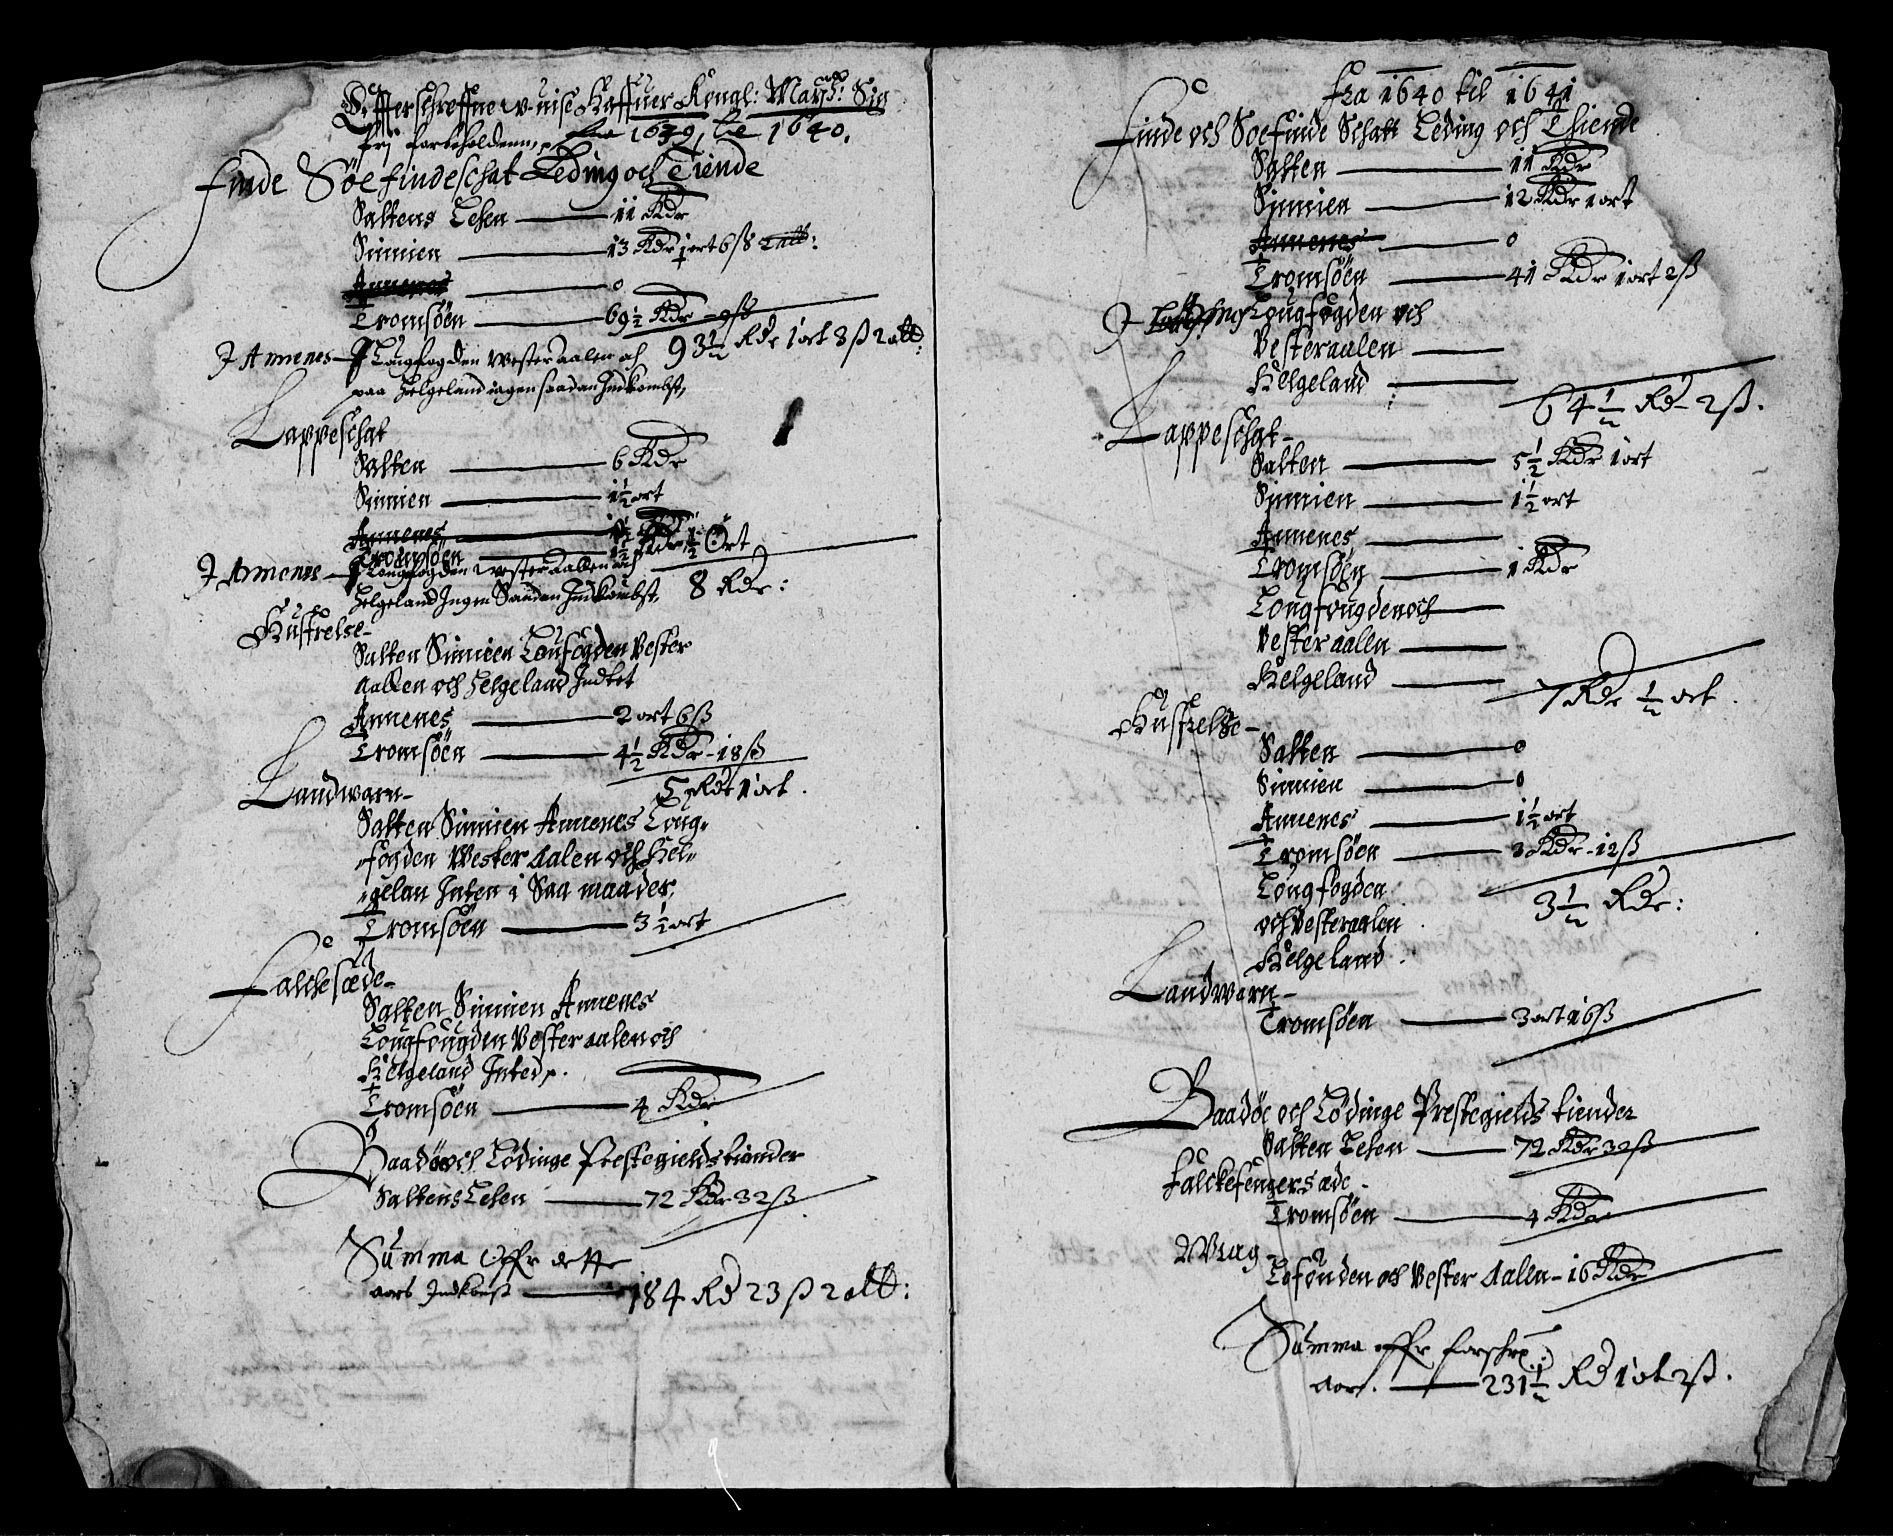 Effterschreffne w-uise Haffuer Kongl: Maytt: Sig
frj forbeholdenn, fra 1639, til 1640.
Finde Söefindeschat Leding och Tiende
Saltens Lehen — 11 Rdr
Sinnien — 13 Rdr 1 ort 6 ß 2 alb:
Annenes — 0
Tromsöen — 69½ Rdr - 9ß
93½ Rdr 1 ort 8 ß 2 alb:
J Annenes — Longfogden Westeraalen och
paa Helgeland ingen saadan Indkombst,
Lappeschat
Salten — 6 Rdr
Sinnien — 1½ ort
Annenes —
Tromsöen — 1½ Rdr ½ Ort
J Annenes — Longfogden Westeraallen och
Helgeland Ingen Saadan Indkombst, 8 Rdr:
Husfrelse -
Salten Sinnien Loufogden Vester
aallen och Helgeland Indtet
Annenes — 2 ort 6 ß
Tromsöen — 4½ Rdr - 18 ß
5 Rdr 1 ort.
Landwarn -
Salten Sinnien Annenes Long-
fogden Wester Aalen och Hel-
gelan Inten i Saa maader.
Tromsöen — 3½ ort
Falchesæde -
Salten Sinnien Annenes
Longfougden Vesteraalen och
Helgeland Inted.
Tromsöen — 4 Rdr
Baadöe och Lödinge Prestegields tiender
Saltens Lehen — 72 Rdr 32 ß
Summa Offr dette
aars Indkomst — 184 Rd 23 ß 2 alb:
Fra 1640 til 1641
Finde och Soefinde Schatt Leding och Thiende
Salten — 11 Rdr
Sinnien — 12 Rdr 1 ort
Annenes — 0
Tromsöen — 41 Rdr 1 ort 2 ß
J Longfogden och
Vesteraalen —
Helgeland —
64½ Rd - 2 ß.
Lappeschat -
Salten — 5½ Rdr 1 ort
Sinnien — 1½ ort
Annenes —
Tromsöen — 1 Rdr
Longfougden och —
Vesteraalen —
Helgeland —
7 Rdr ½ ort.
Husfrelse -
Salten — 0
Sinnien — 0
Annenes — 1½ ort
Tromsöen — 3 Rdr - 12 ß
Longfogden
och Vesteraalen
3½ Rdr:
Helgeland.
Landwarn -
Tromsöen — 3 ort 16 ß
Baadöe och Lödinge Prestegields tiender
Salten Lehen — 72 Rdr 32 ß
Falckefengersæde -
Tromsöen — 4 Rdr
Wrag -
Lofouden och Vester Aalen - 16 Rdr
Summa offr forschr:
aar. — 231½ Rd 1 ort 2 ß.